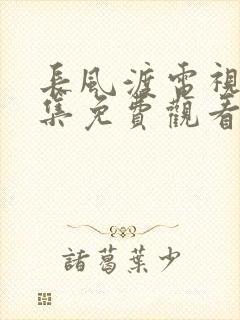 長風渡電視
集免費觀看
諸葛葉少